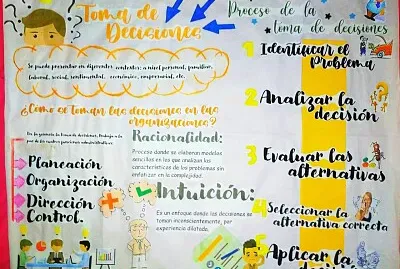 Toma de
Decisiones
Se puede presentar en diferentes contextos: a nivel personal, familiar,
laboral, social, sentimental, económico, empresarial, etc.
¿Cómo se toman las decisiones en las
organizaciones?
Por lo general la toma de decisiones
Planeación
Organización
Dirección
Control.
Racionalidad:
Proceso donde se elaboran modelos
sencillos en los que analizan las
características de los problemas sin
enfatizar en la complejidad.
Intuición:
Es un enfoque donde las decisiones se
toman inconscientemente, por
experiencia dilatada.
Proceso de la
toma de decisiones
1 Identificar el
Problema
2 Analizar la
decisión
3 Evaluar las
alternativas
4 Seleccionar la
alternativa correcta
Aplicar la